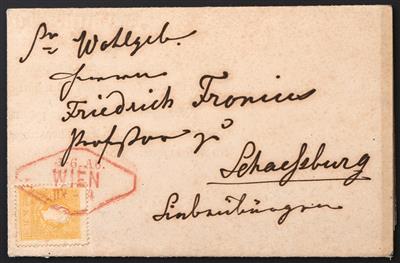 Sr Wohlgeb.
Herrn
Friedrich Fronius
Professor zu
Schaessburg
Siebenbürgen
6. AU.
WIEN